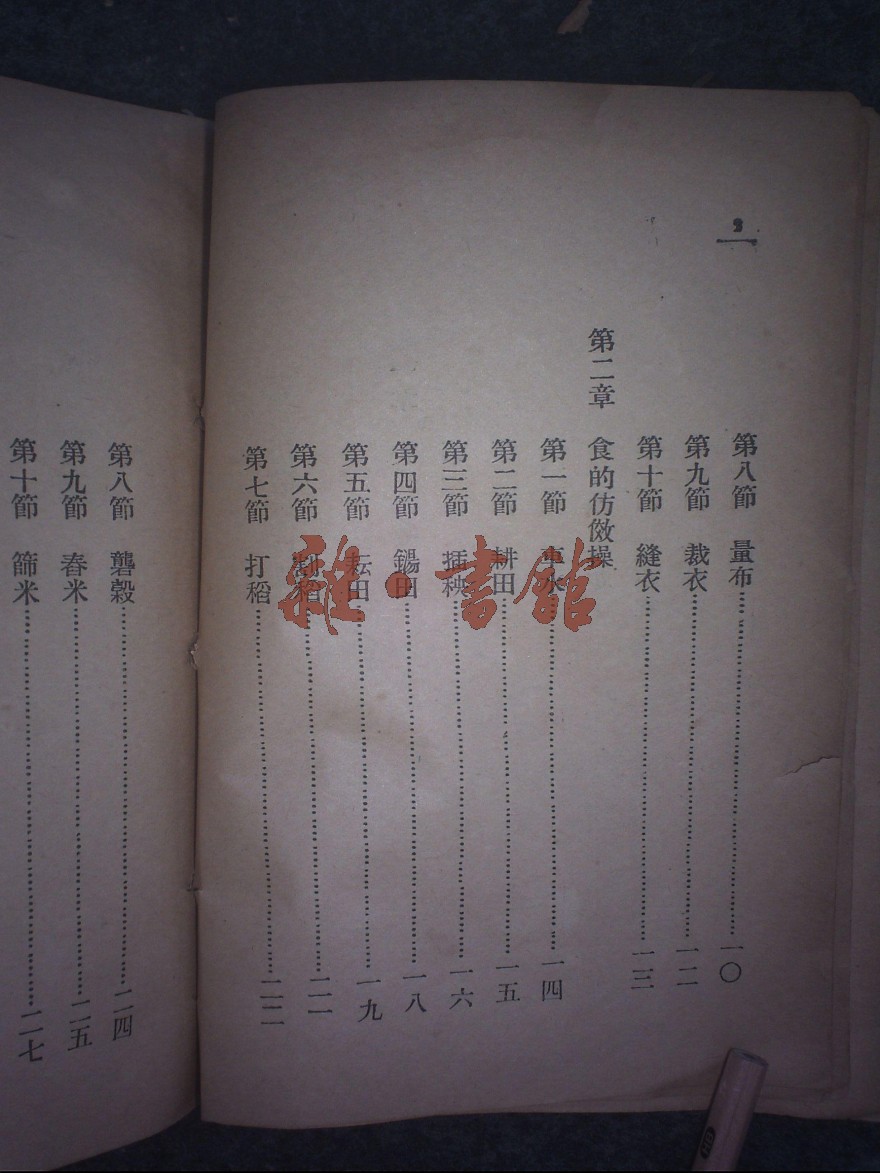 2
第八節 量布 一〇
第九節 裁衣 一二
第十節 縫衣 一三
第二章 食的仿傚操
第一節 車水 一四
第二節 耕田 一五
第三節 插秧 一六
第四節 鍚田 一八
第五節 耘田 一九
第六節 割稻 二一
第七節 打稻 二二
第八節 礱穀 二四
第九節 舂米 二五
第十節 篩米 二七
雜·書館